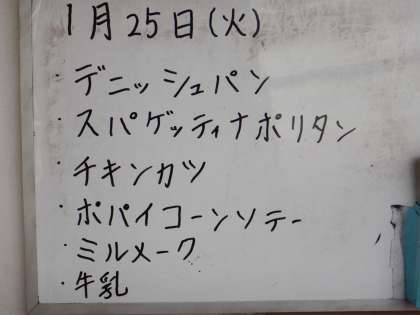 1月25日(火)
・デニッシュパン
・スパゲッティナポリタン
・チキンカツ
・ポパイコーンソテー
・ミルメーク
・牛乳